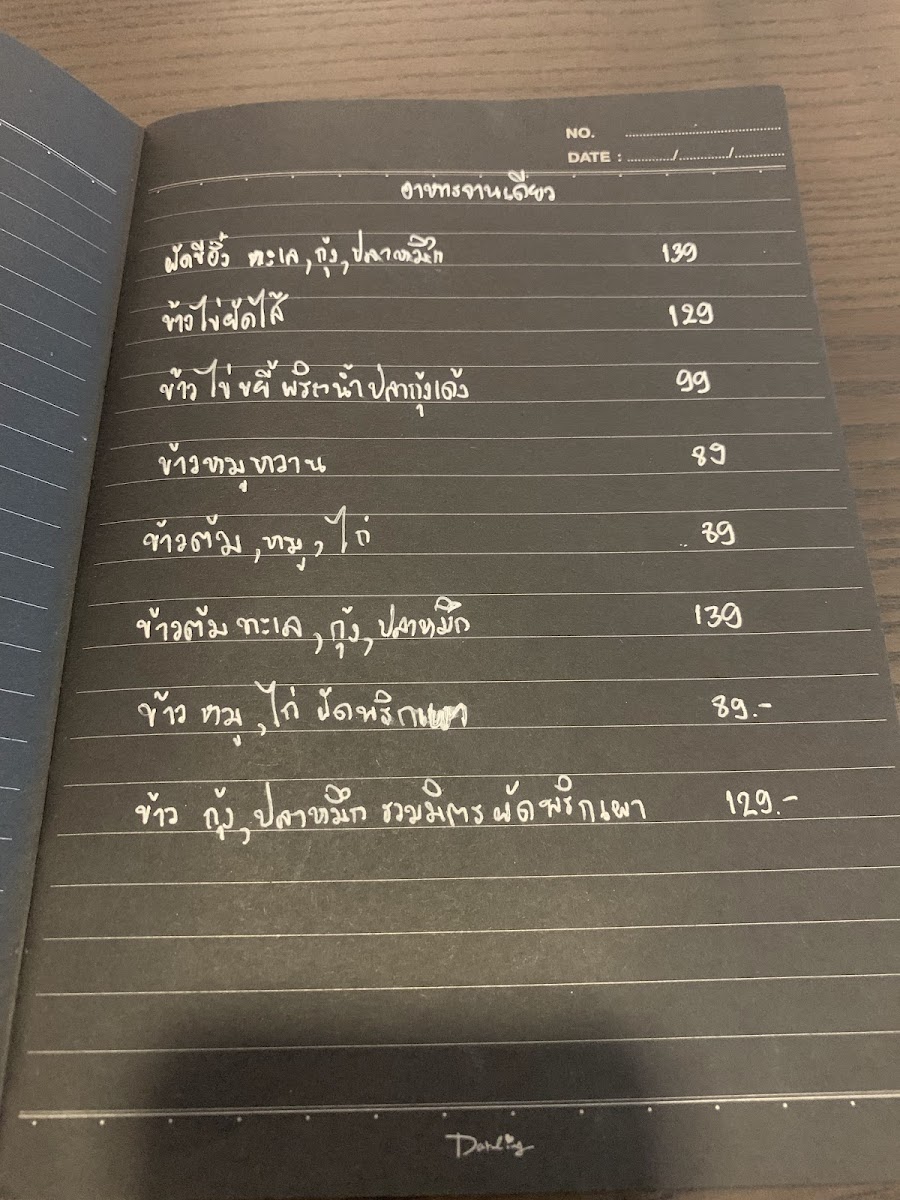 NO.
DATE : / /
อาหารจานเดียว
ผัดซีอิ้ว ทะเล, กุ้ง, ปลาหมึก 139
ข้าวไข่ยัดไส้ 129
ข้าวไข่ขยี้พริกน้ำปลากุ้งเด้ง 99
ข้าวหมูหวาน 89
ข้าวต้ม, หมู, ไก่ 89
ข้าวต้ม ทะเล, กุ้ง, ปลาหมึก 139
ข้าว หมู, ไก่ ผัดพริกเผา 89.-
ข้าว กุ้ง, ปลาหมึก รวมมิตร ผัดพริกเผา 129.-
Darling